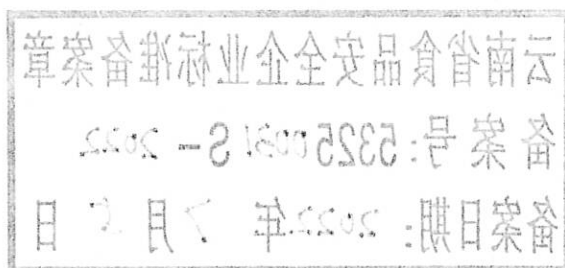 云南省食品安全企业标准备案章
备案号：53250031S-2022
备案日期：2022年7月 日